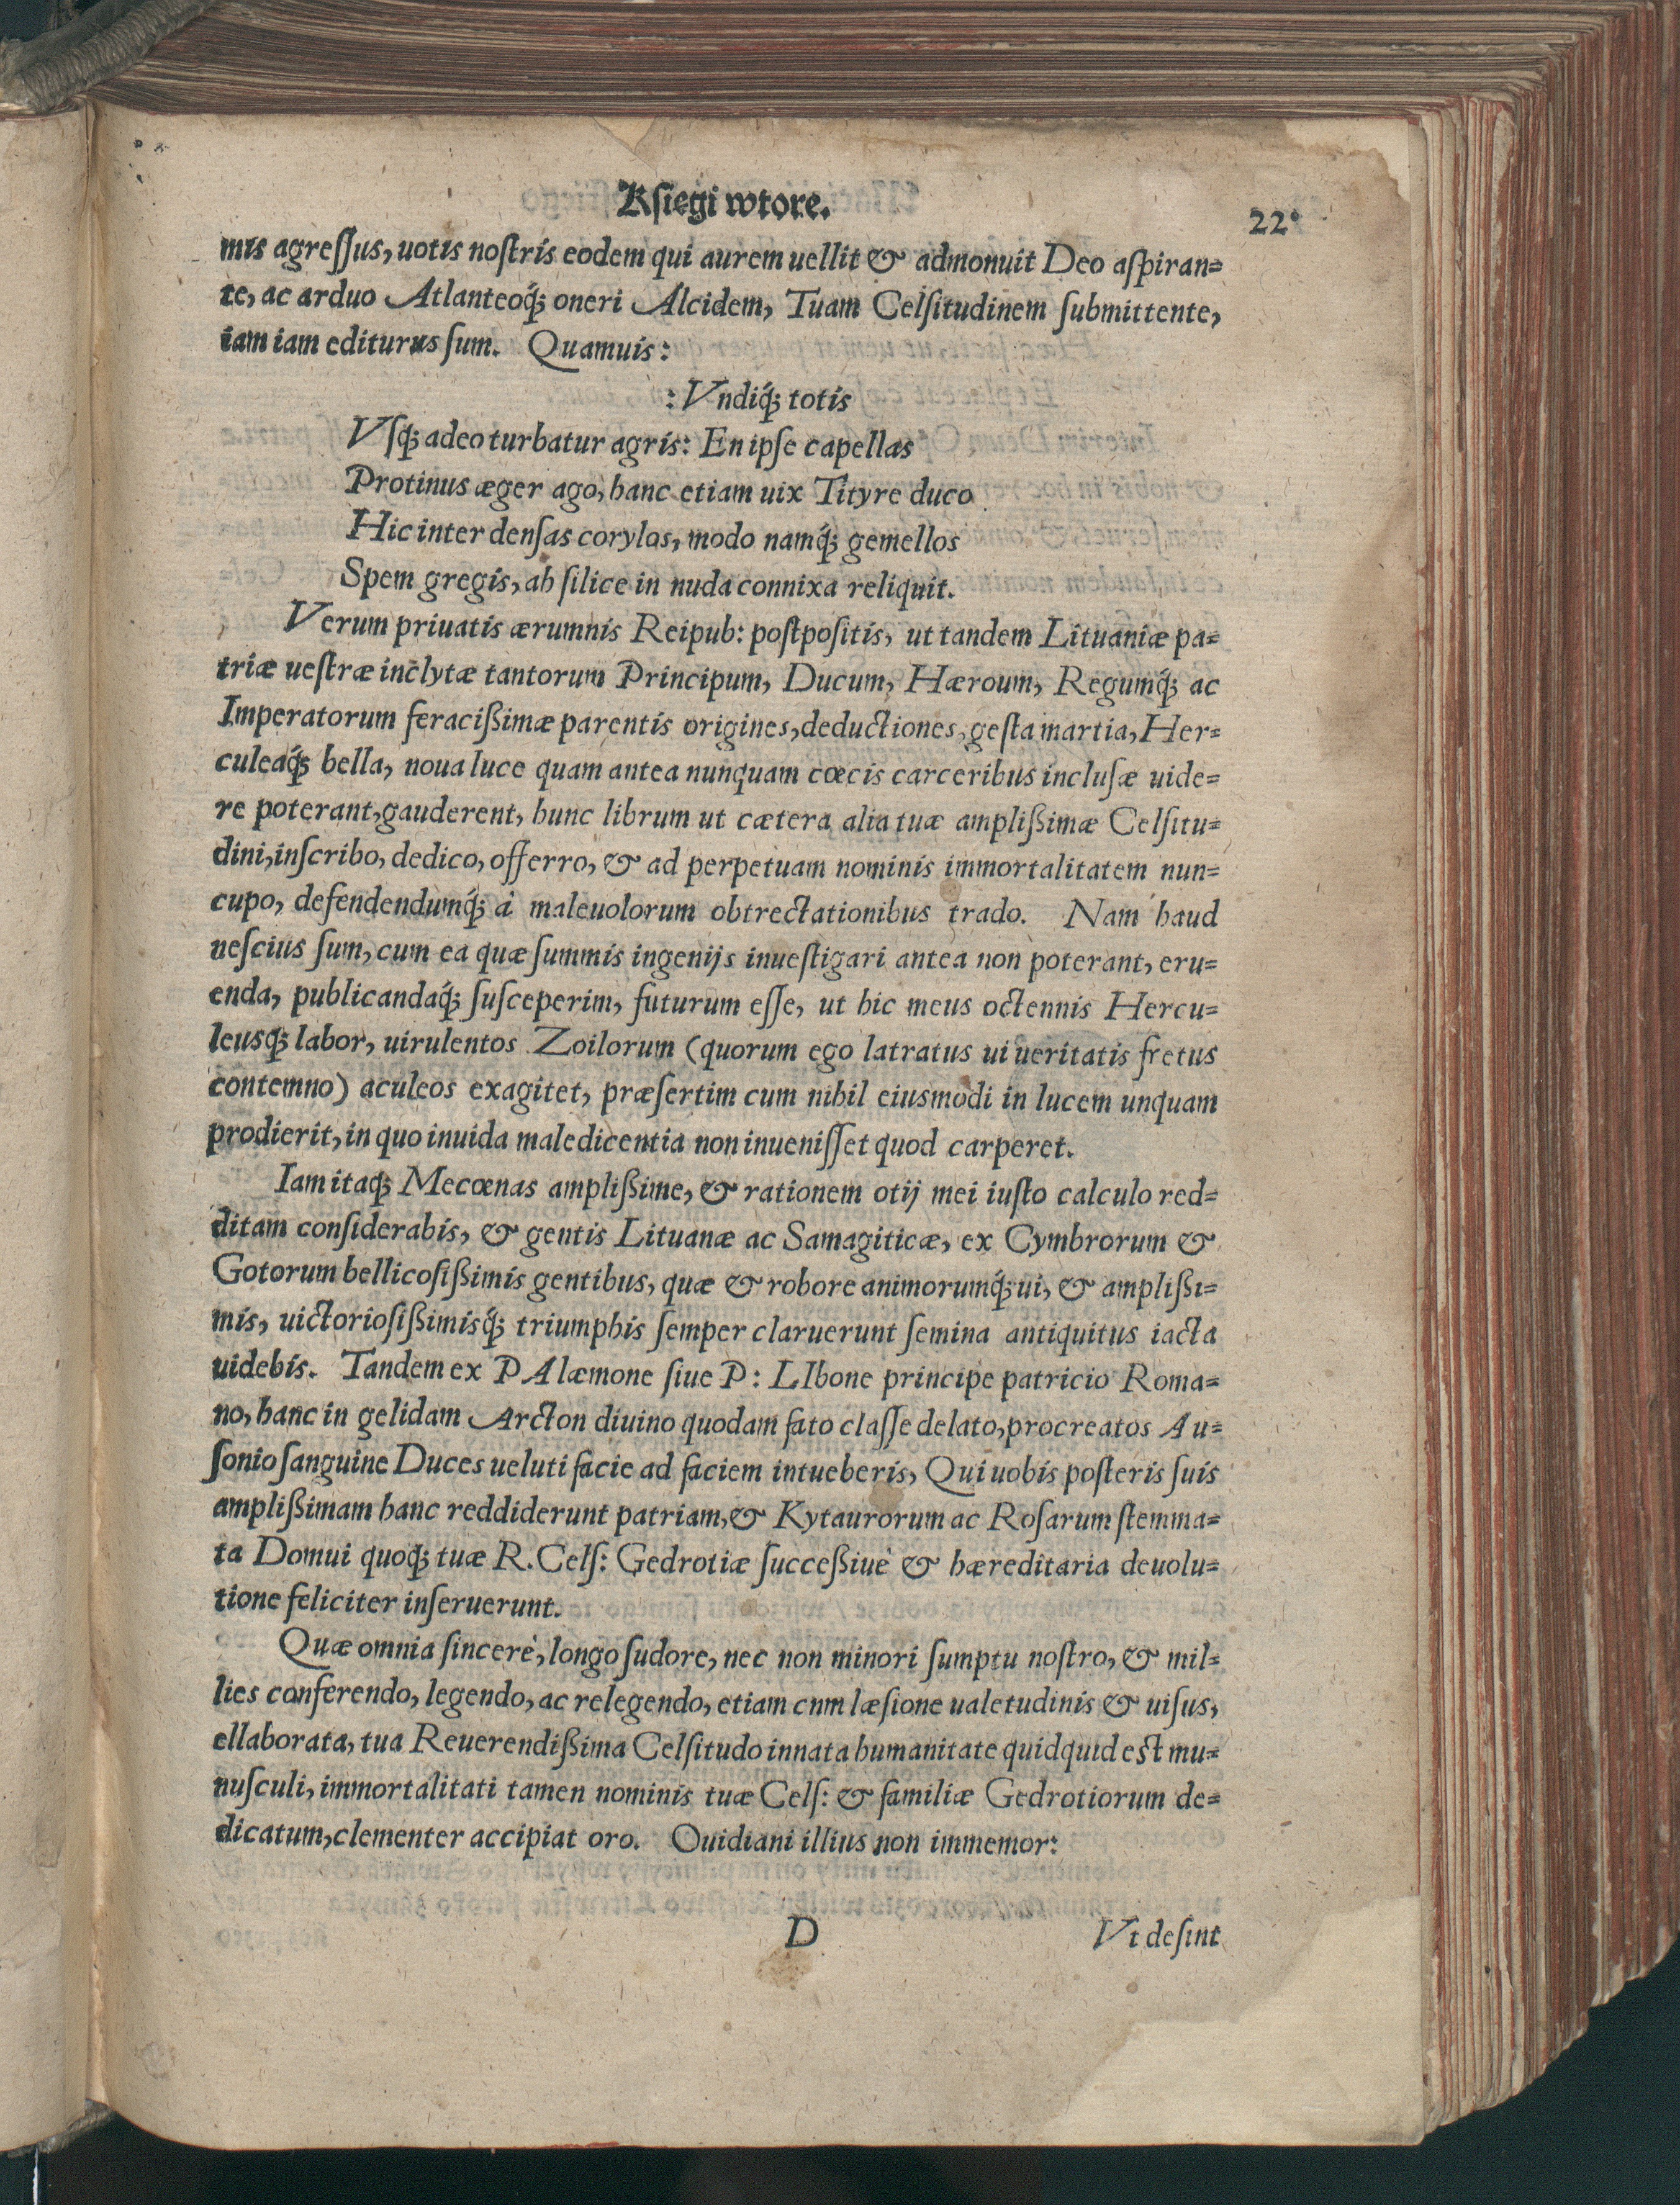 Kſiegi wtore.
22
mis agreſſus, uotis noſtris eodem qui aurem uellit & admonuit Deo aſpiran=
te, ac arduo Atlanteoq́; oneri Alcidem, Tuam Celſitudinem ſubmittente,
iam iam editurus ſum. Quamuis:
: Vndiq́; totis
Vſq́; adeo turbatur agris: En ipſe capellas
Protinus æger ago, hanc etiam uix Tityre duco
Hic inter denſas corylos, modo namq́; gemellos
Spem gregis, ah ſilice in nuda connixa reliquit.
Verum priuatis ærumnis Reipub: poſtpoſitis, ut tandem Lituaniæ pa=
triæ ueſtræ inclytæ tantorum Principum, Ducum, Hæroum, Regumq́; ac
Imperatorum feracißimæ parentis origines, deductiones, geſta martia, Her=
culeaq́; bella, noua luce quam antea nunquam cœcis carceribus incluſæ uide=
re poterant, gauderent, hunc librum ut cætera alia tuæ amplißimæ Celſitu=
dini, inſcribo, dedico, offerro, & ad perpetuam nominis immortalitatem nun=
cupo, defendendumq́; à maleuolorum obtrectationibus trado. Nam haud
neſcius ſum, cum ea quæ ſummis ingenijs inueſtigari antea non poterant, eru=
enda, publicandaq́; ſuſceperim, futurum eſſe, ut hic meus octennis Hercu=
leusq́; labor, uirulentos Zoilorum (quorum ego latratus ui ueritatis fretus
contemno) aculeos exagitet, præſertim cum nihil eiusmodi in lucem unquam
prodierit, in quo inuida maledicentia non inueniſſet quod carperet.
Iam itaq; Mecœnas amplißime, & rationem otij mei iuſto calculo red=
ditam conſiderabis, & gentis Lituanæ ac Samagiticæ, ex Cymbrorum &
Gotorum bellicoſißimis gentibus, quæ & robore animorumq́; ui, & amplißi=
mis, uictorioſißimisq́; triumphis ſemper claruerunt ſemina antiquitus iacta
uidebis. Tandem ex P Alæmone ſiue P: LIbone principe patricio Roma=
no, hanc in gelidam Arcton diuino quodam fato claſſe delato, procreatos Au=
ſonio ſanguine Duces ueluti facie ad faciem intueberis, Qui uobis poſteris ſuis
amplißimam hanc reddiderunt patriam, & Kytaurorum ac Roſarum ſtemma=
ta Domui quoq; tuæ R. Celſ: Gedrotiæ ſucceßiuè & hæreditaria deuolu=
tione feliciter inſeruerunt.
Quæ omnia ſincerè, longo ſudore, nec non minori ſumptu noſtro, & mil=
lies conferendo, legendo, ac relegendo, etiam cnm læſione ualetudinis & uiſus,
ellaborata, tua Reuerendißima Celſitudo innata humanitate quidquid eſt mu=
nuſculi, immortalitati tamen nominis tuæ Celſ: & familiæ Gedrotiorum de=
dicatum, clementer accipiat oro. Ouidiani illius non immemor:
D
Vt deſint